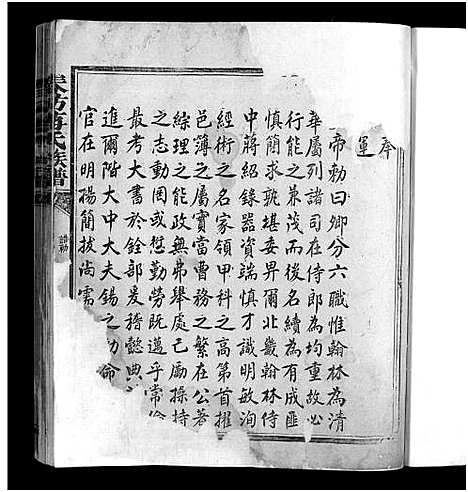 奉
運
帝勅曰卿分六職惟翰林為清
華屬列諸司在侍郎為均重故必
行能之兼茂而後名績為有成匪
慎簡求孰堪委畀爾北畿翰林侍
中蔣紹錄器資端慎才識明敏洵
經術之名家領甲科之高第首擢
邑簿之屬實當曹務之繁在公著
綜理之能政無弗舉處己勵操持
之志動罔或愆勤勞既邁乎常倫
最考大書於銓部爰稽懿典
進爾階大中大夫錫之勅命
官在明揚簡拔尚需
氏族譜
誥勅